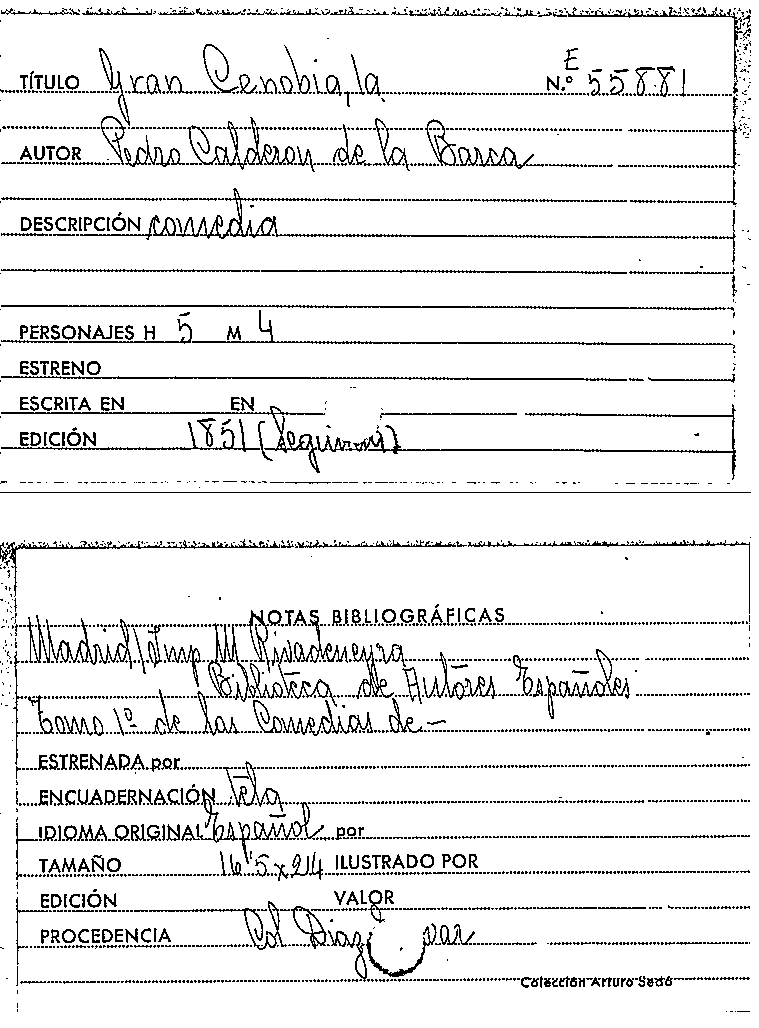 TÍTULO Gran Cenobia, la N.º E 55881
AUTOR Pedro Calderon de la Barca
DESCRIPCIÓN comedia
PERSONAJES H 5 M 4
ESTRENO
ESCRITA EN EN
EDICIÓN 1851 (
NOTAS BIBLIOGRÁFICAS
Madrid/Imp M Rivadeneyra
Biblioteca de Autores Españoles
Tomo 1º de las Comedias de —
ESTRENADA por
ENCUADERNACIÓN tela
IDIOMA ORIGINAL Español por
TAMAÑO 16'5x24 ILUSTRADO POR
EDICIÓN VALOR
PROCEDENCIA Col Diaz
Colección Arturo Sedó